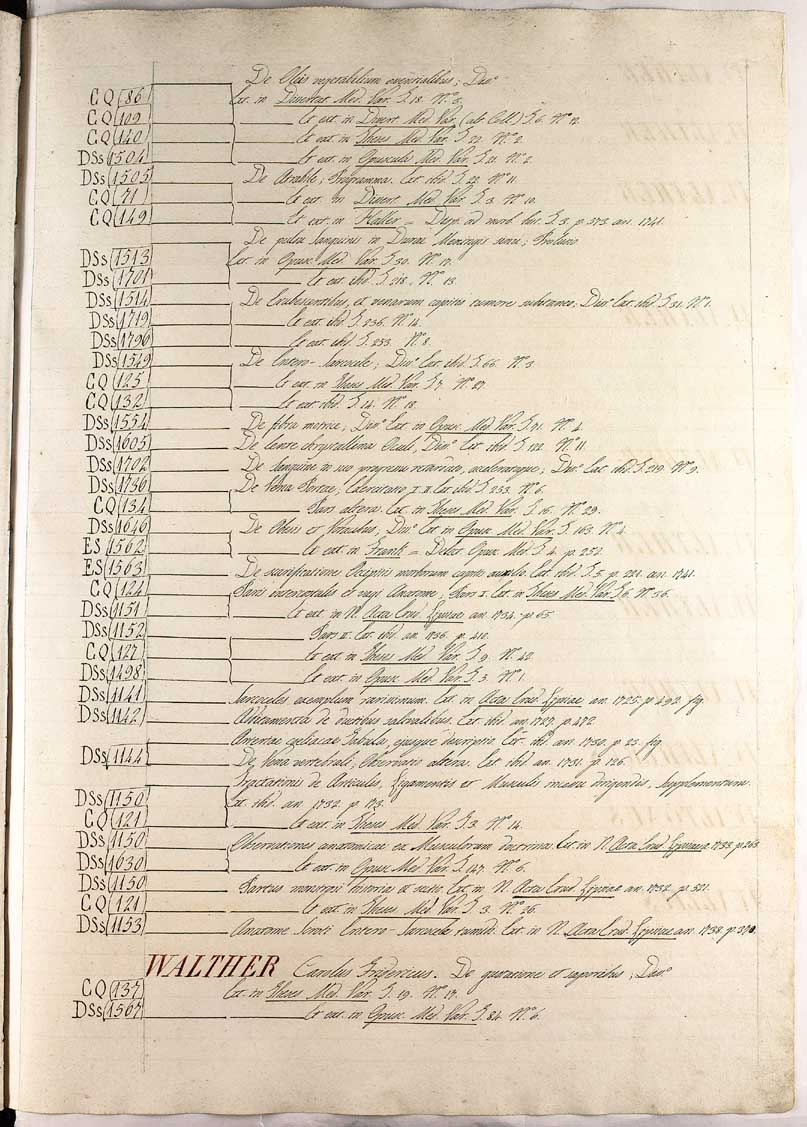 De Oleis vegetabilium essentialibus; Diss.º
CQ 86 Ext. in Dissertat. Med. Var. T. 18. N.º 8.
CQ 109 Et ext. in Dissert. Med. Var. (alt. Coll.) T. 6. N.º 12.
CQ 140 Et ext. in Theses Med. Var. T. 22. N.º 2.
DSs 1504 Et ext. in Opuscula Med. Var. T. 21. N.º 2.
DSs 1505 De Programma. Ext. ibid. T. 22. N.º 11.
CQ 71 Et ext. in Dissert. Med. Var. T. 3. N.º 10.
CQ 149 Et ext. in Haller = Disp. ad morb. T. 3. p. 573. an. 1741.
De pulsu Sanguinis in Durae Meningis sinu; Prolusio
DSs 1513 Ext. in Opusc. Med. Var. T. 30. N.º 17.
DSs 1701 Et ext. ibid. T. 218. N.º 13.
DSs 1514 De et venarum capitis tumore Diss.º Ext. ibid. T. 31. N.º 1.
DSs 1719 Et ext. ibid. T. 236. N.º 14.
DSs 1796 Et ext. ibid. T. 233. N.º 8.
DSs 1549 De Entero-Sarcocele; Diss.º Ext. ibid. T. 66. N.º 3.
CQ 125 Et ext. in Theses Med. Var. T. 7. N.º 27.
CQ 132 Et ext. ibid. T. 14. N.º 18.
DSs 1554 De fibra motrice, Diss.º Ext. in Opusc. Med. Var. T. 71. N.º 4.
DSs 1605 De lente chrystallina Oculi, Diss.º Ext. ibid. T. 122. N.º 11.
DSs 1702 De Sanguine in suo progressu Diss.º Ext. ibid. T. 219. N.º 9.
DSs 1736 De Vena Portae, I. II. Ext. ibid. T. 253. N.º 6.
CQ 134 Pars altera. Ext. in Theses Med. Var. T. 16. N.º 29.
DSs 1646 De Obesis et Voracibus, Diss.º Ext. in Opusc. Med. Var. T. 163. N.º 4.
ES 1562 Et ext. in Frank = Delect. Opusc. Med. T. 4. p. 252.
ES 1563 De scarificatione Occipitis morborum capitis auxilio. Ext. ibid. T. 5. p. 221. an. 1741.
CQ 124 Paris intercostalis et vagi Anatome; Pars I. Ext. in Theses Med. Var. T. 6. N.º 36.
DSs 1151 Et ext. in N. Acta Erud. Lipsiae. an. 1734. p. 65.
DSs 1152 Pars II. Ext. ibid. an. 1735. p. 410.
CQ 127 Et ext. in Theses Med. Var. T. 9. N.º 42.
DSs 1498 Et ext. in Opusc. Med. Var. T. 3. N.º 1.
DSs 1141 Sarcoceles exemplum rarissimum. Ext. in Acta Erud. Lipsiae. an. 1725. p. 492. fig.
DSs 1142 Additamenta de ductibus salivalibus. Ext. ibid. an. 1727. p. 472.
Arteriae coeliacae Tabula, ejusque descriptio. Ext. ibid. an. 1730. p. 23. fig.
DSs 1144 De Vena vertebrali, Observatio altera. Ext. ibid. an. 1731. p. 126.
Tractationis de Articulis, Ligamentis et Musculis incessu dirigendis, Supplementum.
DSs 1150 Ext. ibid. an. 1732. p. 173.
CQ 121 Et ext. in Theses Med. Var. T. 3. N.º 14.
DSs 1150 Observationes anatomicae ex Musculorum doctrina. Ext. in N. Acta Erud. Lipsiae. 1733. p. 263.
DSs 1630 Et ext. in Opusc. Med. Var. T. 147. N.º 6.
DSs 1150 Partus monstrosi historia et sectio. Ext. in N. Acta Erud. Lipsiae an. 1732. p. 321.
CQ 121 Et ext. in Theses Med. Var. T. 3. N.º 26.
DSs 1153 Anatome Scroti Entero-Sarcocele tumidi. Ext. in N. Acta Erud. Lipsiae an. 1738. p. 370.
WALTHER Carolus Fridericus. De gustatione et saporibus; Diss.º
CQ 137 Ext. in Theses Med. Var. T. 19. N.º 17.
DSs 1567 Et ext. in Opusc. Med. Var. T. 84. N.º 6.